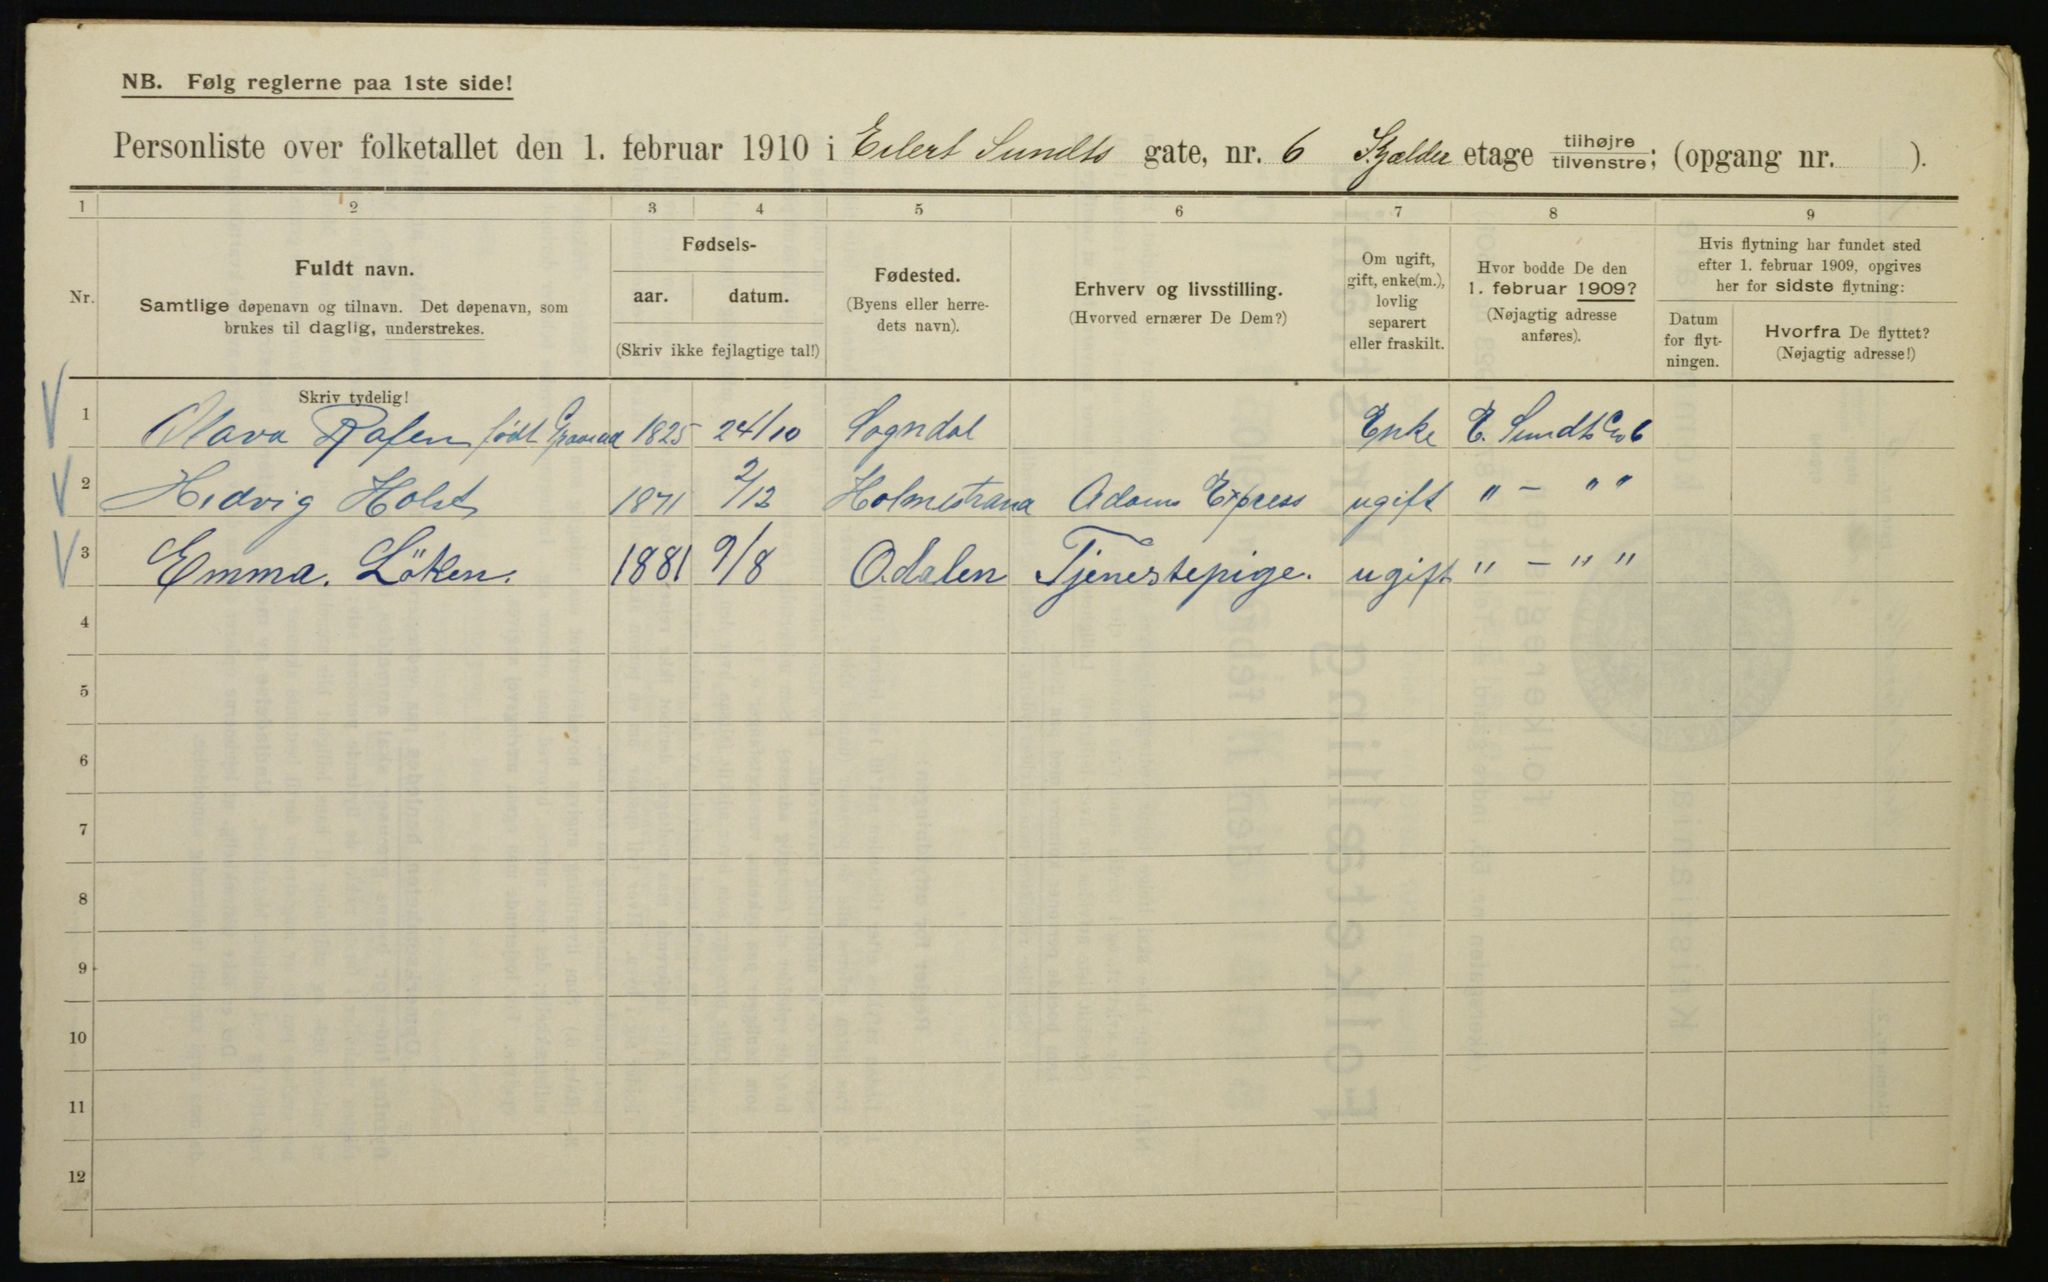 NB. Følg reglerne paa 1ste side!
Personliste over folketallet den 1. februar 1910 i Eilert Sundts gate, nr. 6 Kjælder etage tilhøjre tilvenstre; (opgang nr. ).
1 2 3 4 5 6 7 8 9
Nr.
Fuldt navn.
Samtlige døpenavn og tilnavn. Det døpenavn, som
brukes til daglig, understrekes.
Fødsels-
aar. datum.
(Skriv ikke fejlagtige tal!)
Fødested.
(Byens eller herre-
dets navn).
Erhverv og livsstilling.
(Hvorved ernærer De Dem?)
Om ugift,
gift, enke(m.),
lovlig
separert
eller fraskilt.
Hvor bodde De den
1. februar 1909?
(Nøjagtig adresse
anføres).
Hvis flytning har fundet sted
efter 1. februar 1909, opgives
her for sidste flytning:
Datum
for flyt-
ningen.
Hvorfra De flyttet?
(Nøjagtig adresse!)
Skriv tydelig!
1 Olava Rafen født 1825 24/10 Sogndal Enke E. Sundts G 6
2 Hedvig Holst 1871 2/12 Holmestrand Adams Express ugift " - " "
3 Emma. Löken. 1881 9/8 Odalen Tjenestepige. ugift " - " "
4
5
6
7
8
9
10
11
12